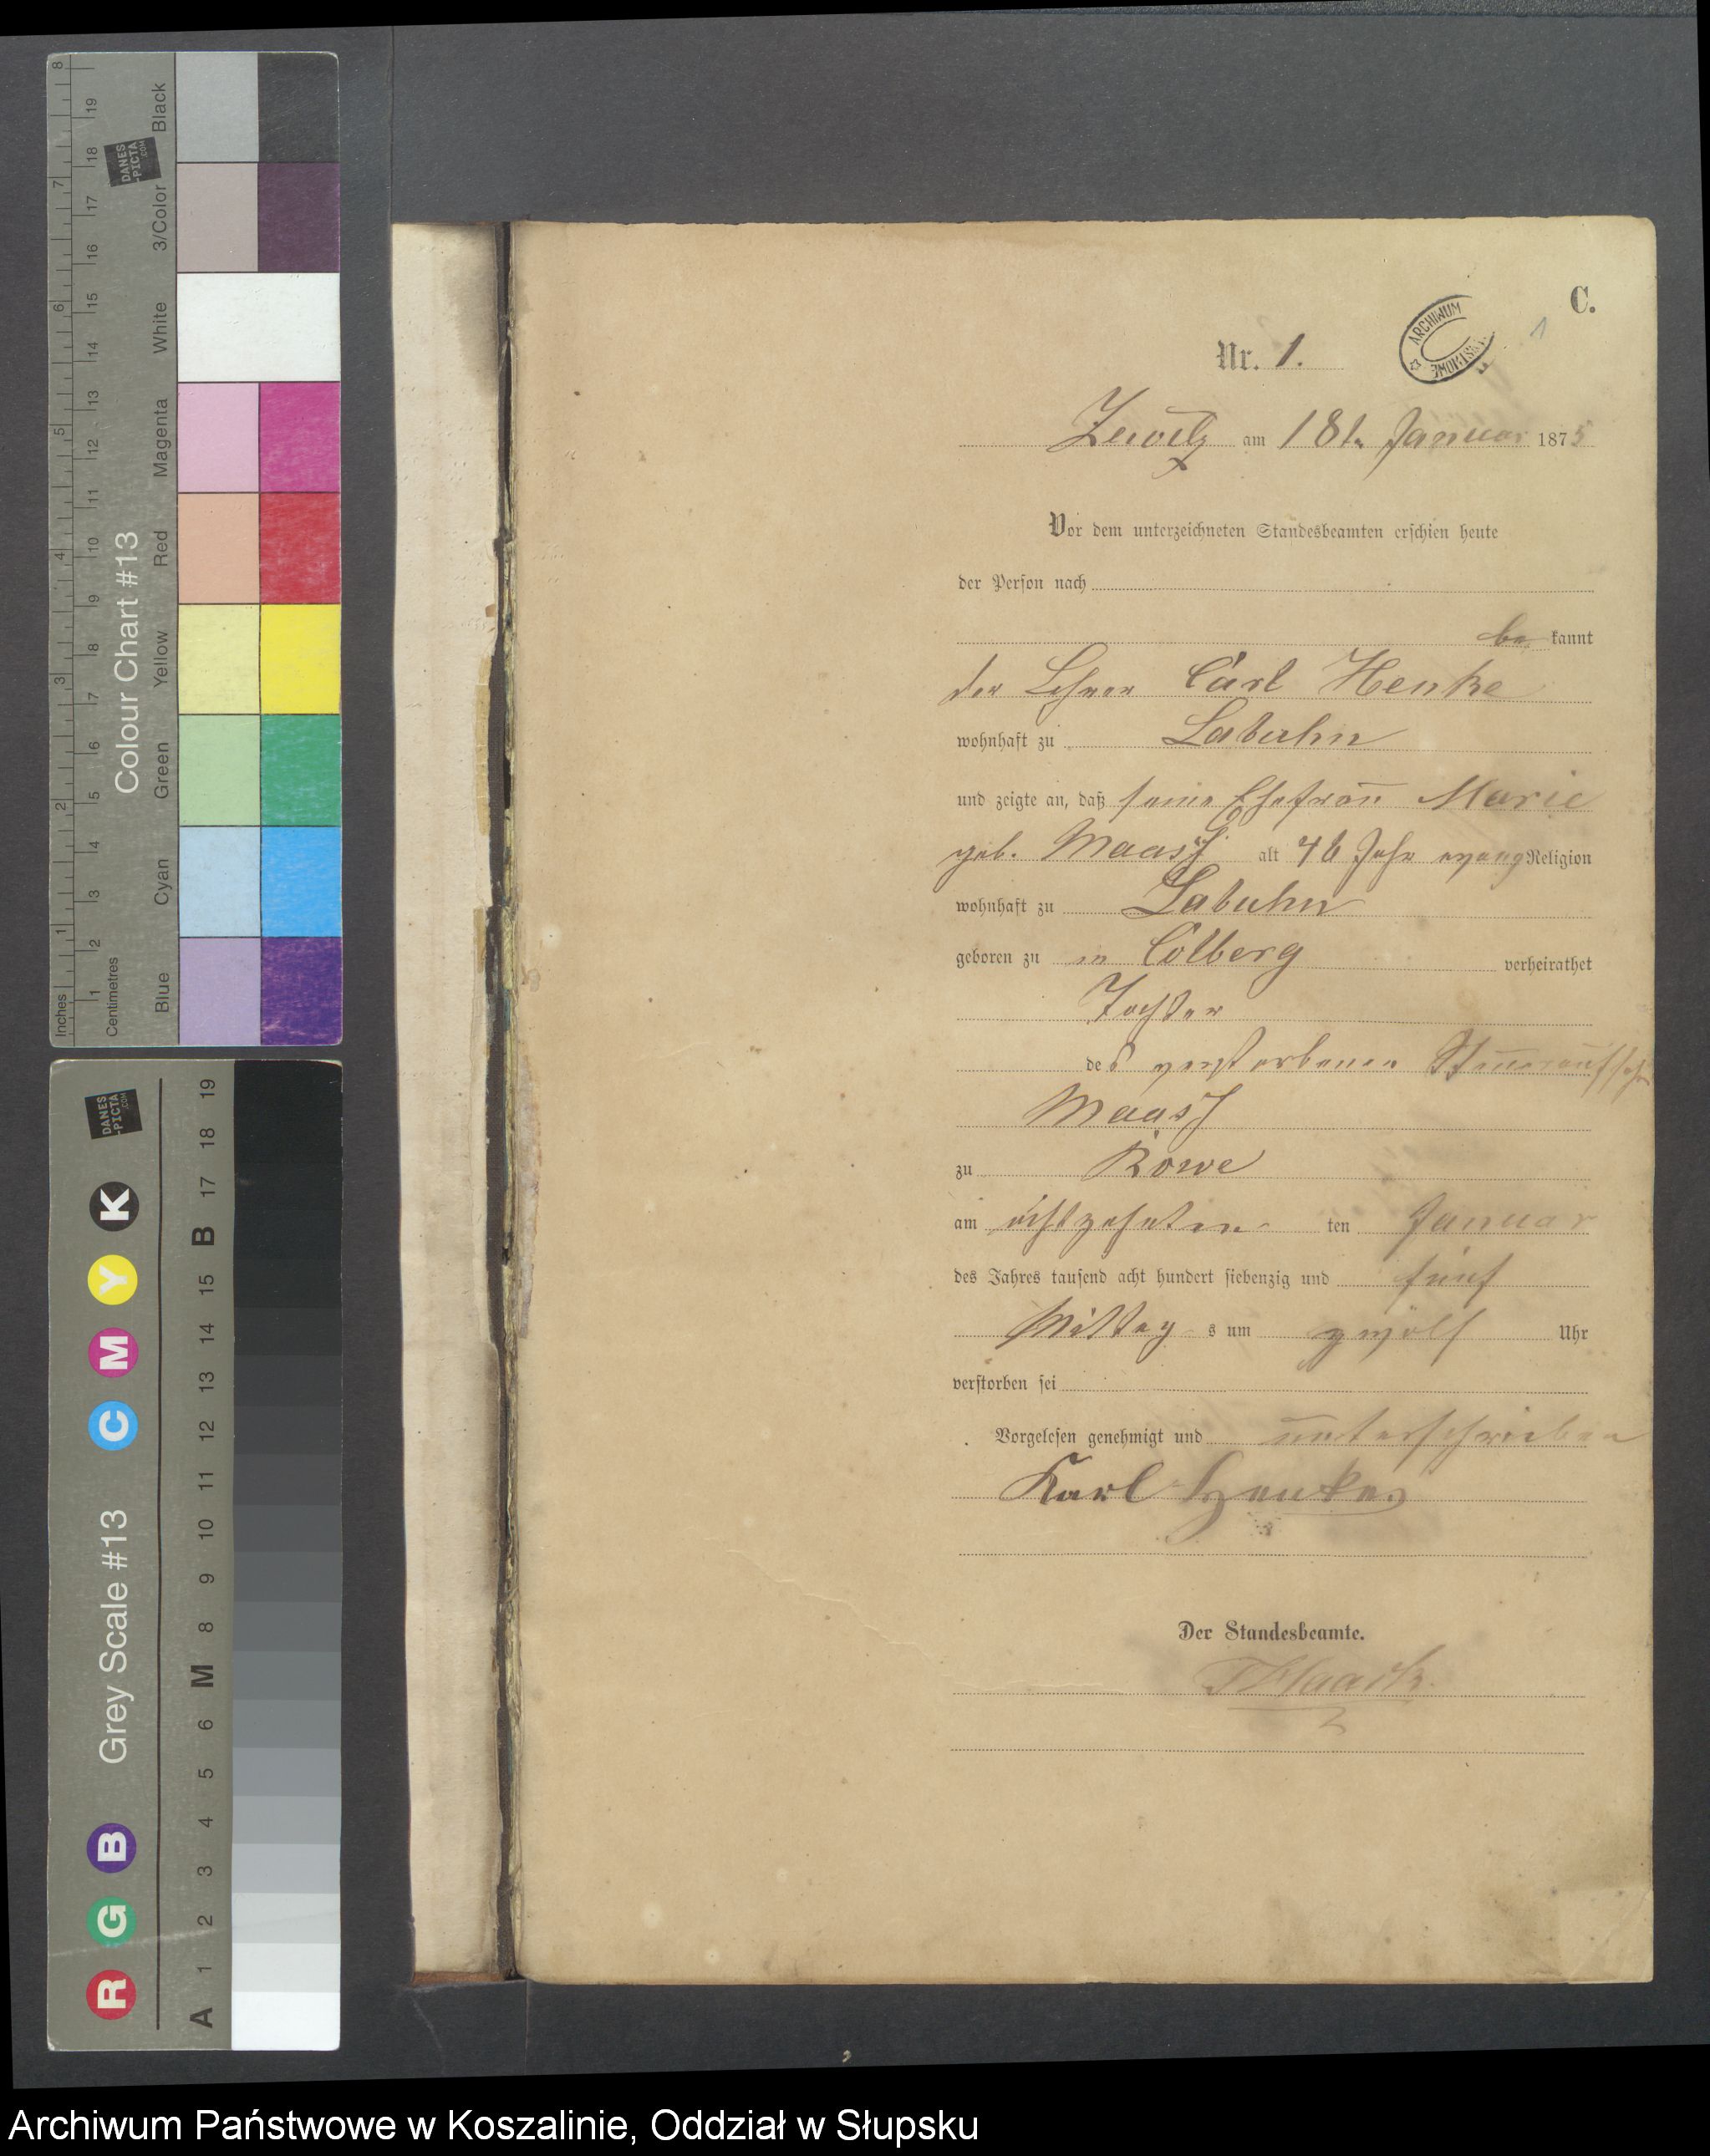 C.
ARCHIWUM
1
Nr. 1.
Zewitz am 18t. Januar 1875
Vor dem unterzeichneten Standesbeamten erschien heute
der Person nach
be kannt
der Carl Henke
wohnhaft zu Labuhn
und zeigte an, daß seine Ehefrau Marie
geb. Maass alt 46 Jahr evang Religion
wohnhaft zu Labuhn
geboren zu in Colberg verheirathet
Tochter
des verstorbenen
Maass
zu Rowe
am achtzehnten ten Januar
des Jahres tausend acht hundert siebenzig und fünf
Mittag s um zwölf Uhr
verstorben sei
Vorgelesen genehmigt und unterschrieben
Karl Henke
Der Standesbeamte.
Inches
1 2 3 4 5 6 7 8
Centimetres
1 2 3 4 5 6 7 8 9 10 11 12 13 14 15 16 17 18 19
Colour Chart #13
Blue Cyan Green Yellow Red Magenta White 3/Color Black
DANES
-PICTA
.COM
Grey Scale #13
R G B C M Y K
A 1 2 3 4 5 6 M 8 9 10 11 12 13 14 15 B 17 18 19
DANES
-PICTA
.COM
Archiwum Państwowe w Koszalinie, Oddział w Słupsku